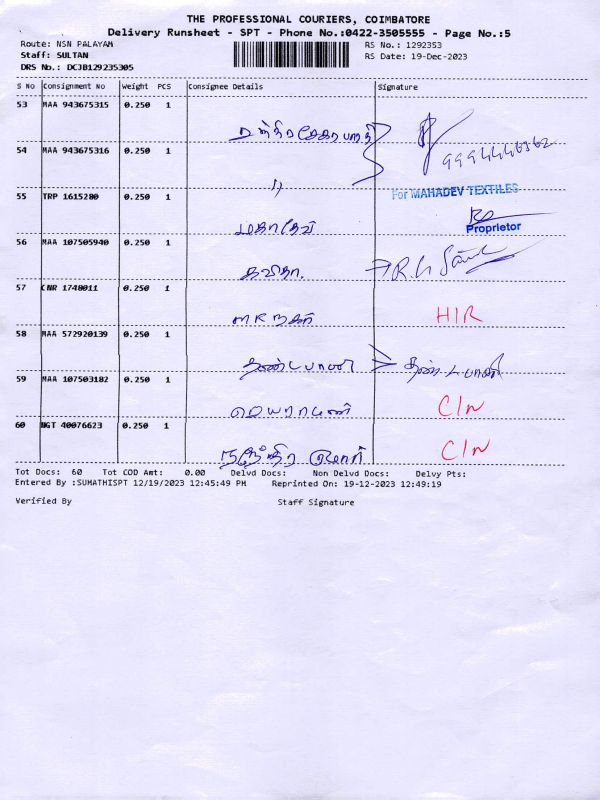 THE PROFESSIONAL COURIERS, COIMBATORE
Delivery Runsheet - SPT - Phone No.:0422-3505555 - Page No.:5
Route: NSN PALAYAM RS No.: 1292353
Staff: SULTAN RS Date: 19-Dec-2023
DRS No.: DCJB129235305
S No Consignment No Weight PCS Consignee Details Signature
53 MAA 943675315 0.250 1
54 MAA 943675316 0.250 1
55 TRP 1615280 0.250 1
For MAHADEV TEXTILES
மகாதேவ் Proprietor
56 MAA 107505940 0.250 1
கவிதா.
57 CNR 1748011 0.250 1
HIR
58 MAA 572920139 0.250 1
தண்டபாணி தண்டபாணி
59 MAA 107503182 0.250 1
C/N
60 NGT 40076623 0.250 1
C/N
Tot Docs: 60 Tot COD Amt: 0.00 Delvd Docs: Non Delvd Docs: Delvy Pts:
Entered By :SUMATHISPT 12/19/2023 12:45:49 PM Reprinted On: 19-12-2023 12:49:19
Verified By Staff Signature